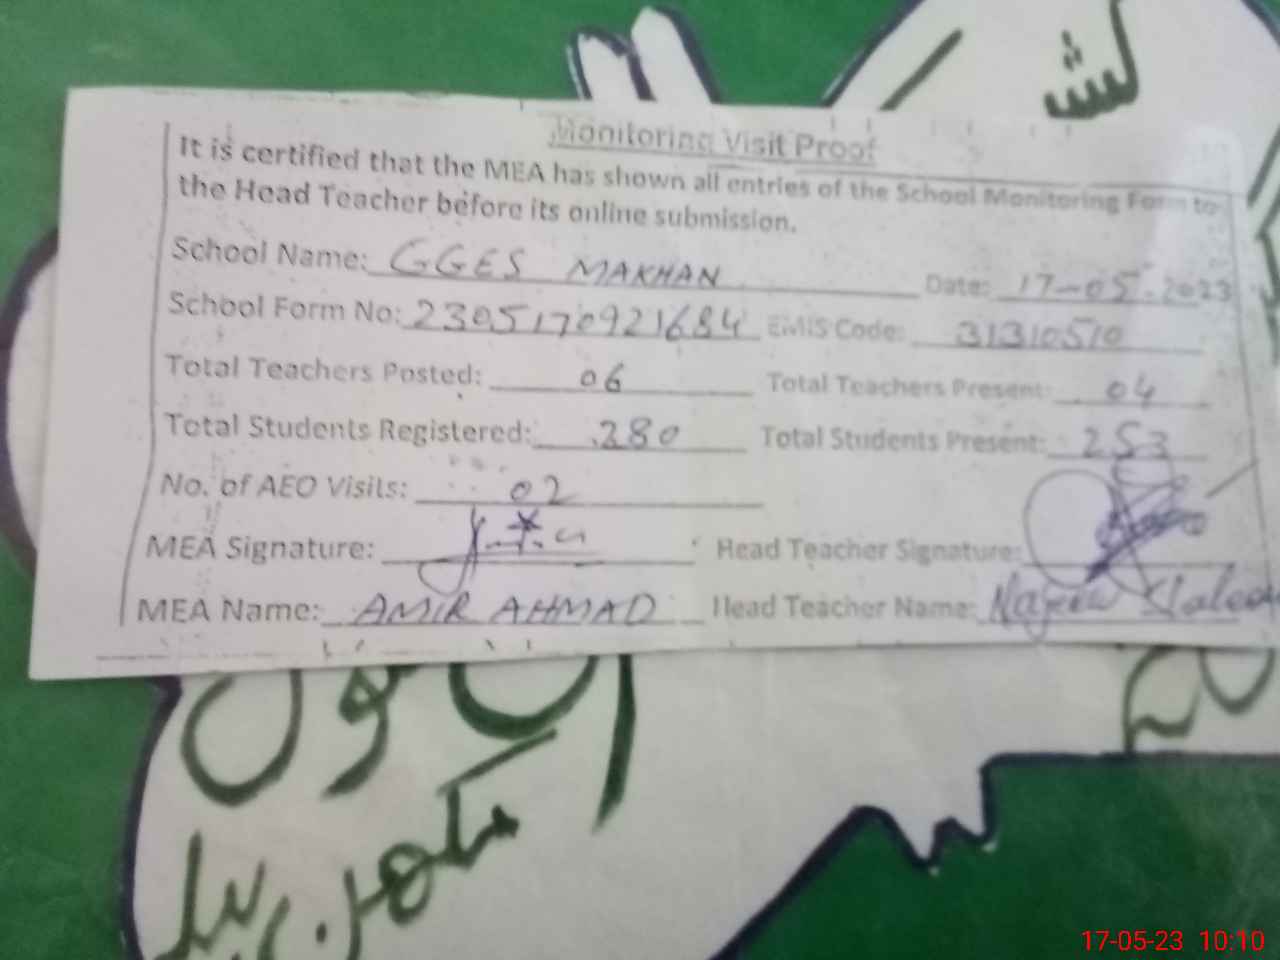 لش
Monitoring Visit Proof
It is certified that the MEA has shown all entries of the School Monitoring Form to
the Head Teacher before its online submission.
School Name: GGES MAKHAN Date: 17-05-2023
School Form No: 2305170921684 EMIS Code: 31310510
Total Teachers Posted: 06 Total Teachers Present: 04
Total Students Registered: 280 Total Students Present: 253
No. of AEO Visits: 02
MEA Signature: Head Teacher Signature:
MEA Name: AMIR AHMAD Head Teacher Name:
17-05-23 10:10